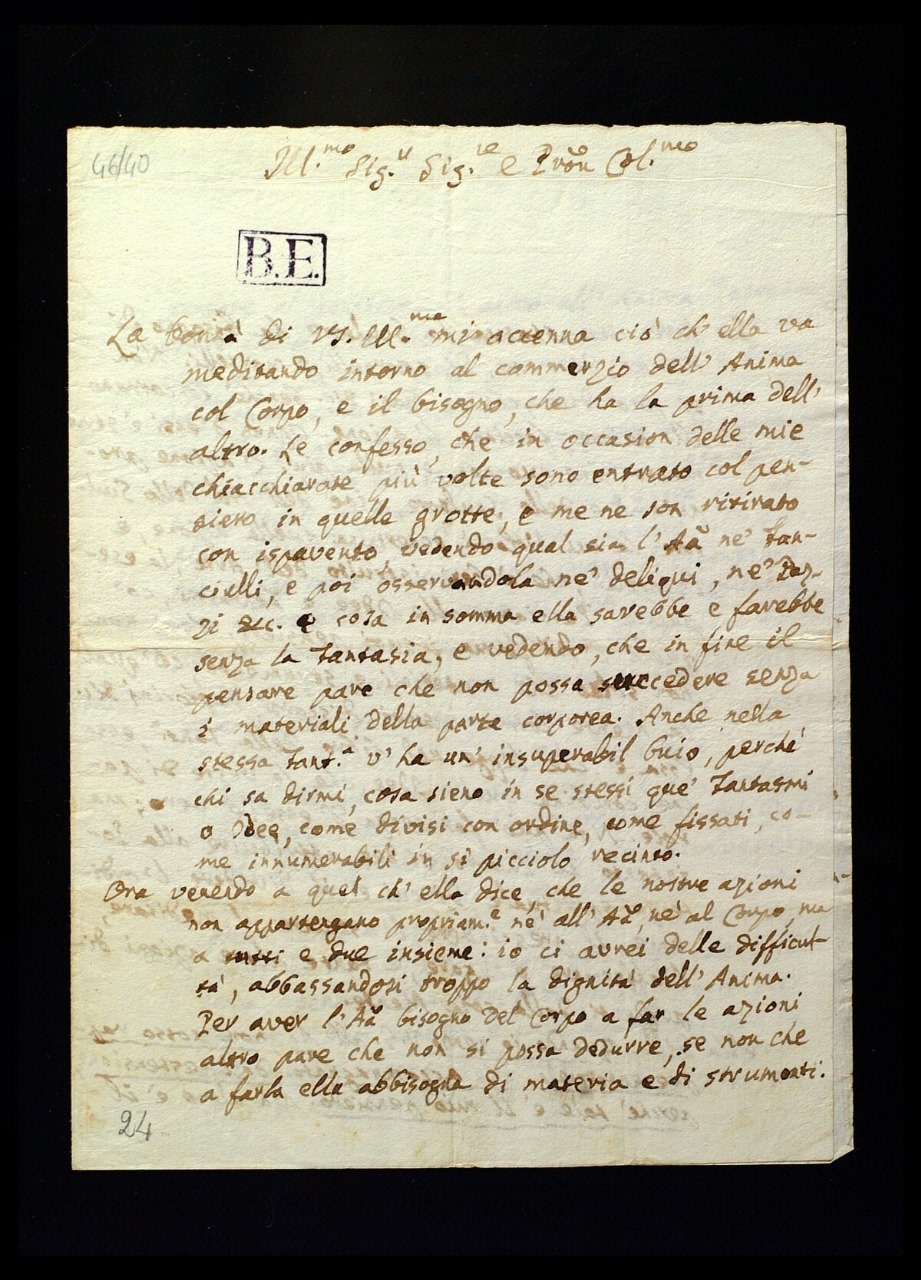 46/40
Ill.mo Sig.r Sig.re e Pron Col.mo
B.E.
La bontà di V.S. Ill.ma mi accenna ciò ch' ella va
meditando intorno al commerzio dell' Anima
col Corpo, e il bisogno, che ha la prima dell'
altro. Le confesso, che in occasion delle mie
chiacchiarate più volte sono entrato col pen-
siero in quelle grotte, e me ne son ritirato
con ispavento vedendo qual sia l' Aã ne' Fan-
ciulli, e poi osservandola ne' deliqui, ne' Paz-
zi &c. e cosa in somma ella sarebbe e farebbe
senza la Fantasia, e vedendo, che in fine il
pensare pare che non possa succedere senza
i materiali della parte corporea. Anche nella
stessa Fant.a v' ha un' insuperabil buio, perché
chi sa dirmi, cosa sieno in se stessi que' Fantasmi
o Idee, come divisi con ordine, come fissati, co-
me innumerabili in sì picciolo recinto.
Ora venendo a quel ch' ella dice, che le nostre azioni
non appartengano propriam.e né all' Aã, né al Corpo, ma
a tutti e due insieme: io ci avrei delle difficul-
tà, abbassandosi troppo la dignità dell' Anima.
Per aver l' Aã bisogno del Corpo a far le azioni
altro pare che non si possa dedurre, se non che
a farla ella abbisogna di materia e di strumenti.
24